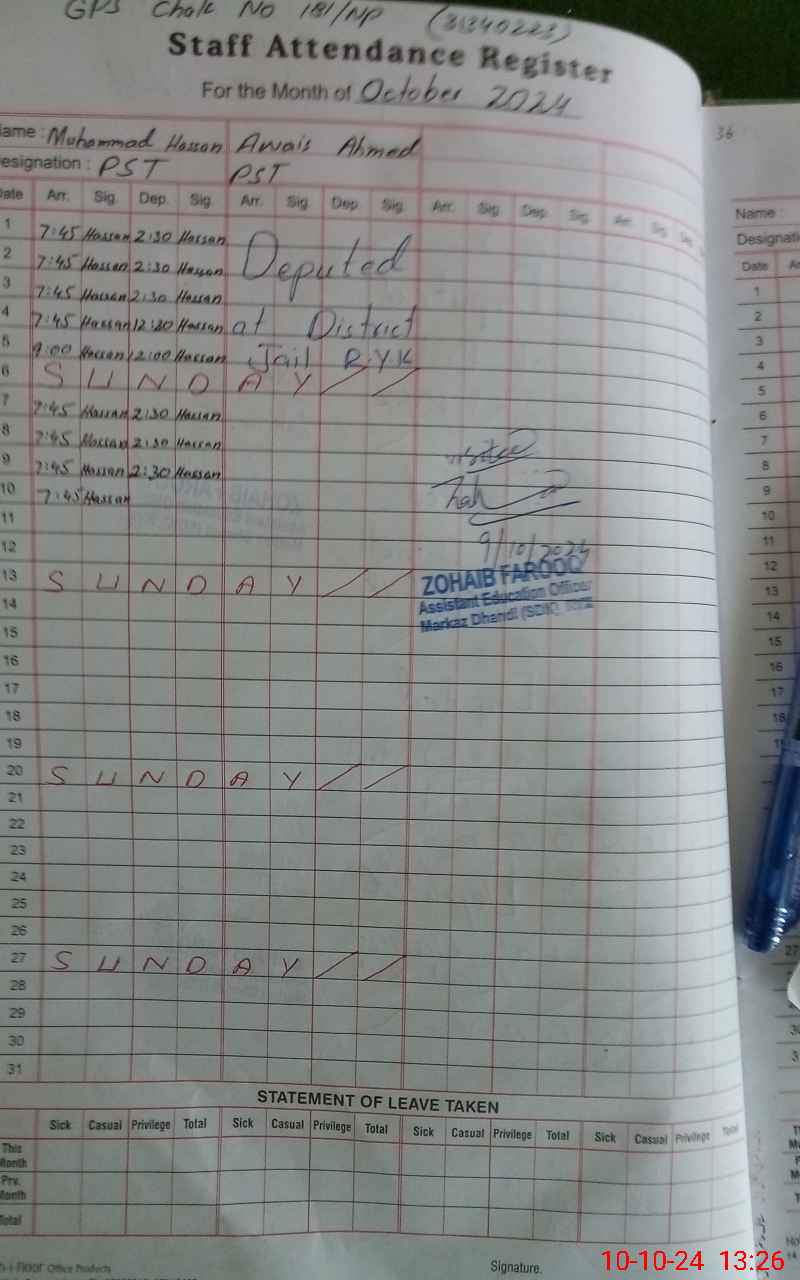 GPS Chak No 181/NP (31340223)
Staff Attendance Register
For the Month of October 2024
ame : Muhammad Hassan Awais Ahmed
esignation : PST PST
Date Arr. Sig. Dep. Sig. Arr. Sig. Dep. Sig. Arr. Sig. Dep. Sig. Arr. Sig.
1 7:45 Hassan 2:30 Hassan
2 7:45 Hassan 2:30 Hassan Deputed
3 7:45 Hassan 2:30 Hassan
4 7:45 Hassan 12:30 Hassan at District
5 9:00 Hassan 12:00 Hassan Jail R.Y.K
6 S U N D A Y
7 7:45 Hassan 2:30 Hassan
8 7:45 Hassan 2:30 Hassan
9 7:45 Hassan 2:30 Hassan
10 7:45 Hassan
11
12 9/10/2024
13 S U N D A Y ZOHAIB FAROOQ
Assistant Education Officer
14 Markaz Dhandi (SDK),
15
16
17
18
19
20 S U N D A Y
21
22
23
24
25
26
27 S U N D A Y
28
29
30
31
STATEMENT OF LEAVE TAKEN
Sick Casual Privilege Total Sick Casual Privilege Total Sick Casual Privilege Total Sick Casual Privilege Total
This
Month
Prv.
Month
Total
Office Products
Signature.
36
Name :
Designati
Date
1
2
3
4
5
6
7
8
9
10
11
12
13
14
15
16
17
18
27
10-10-24 13:26